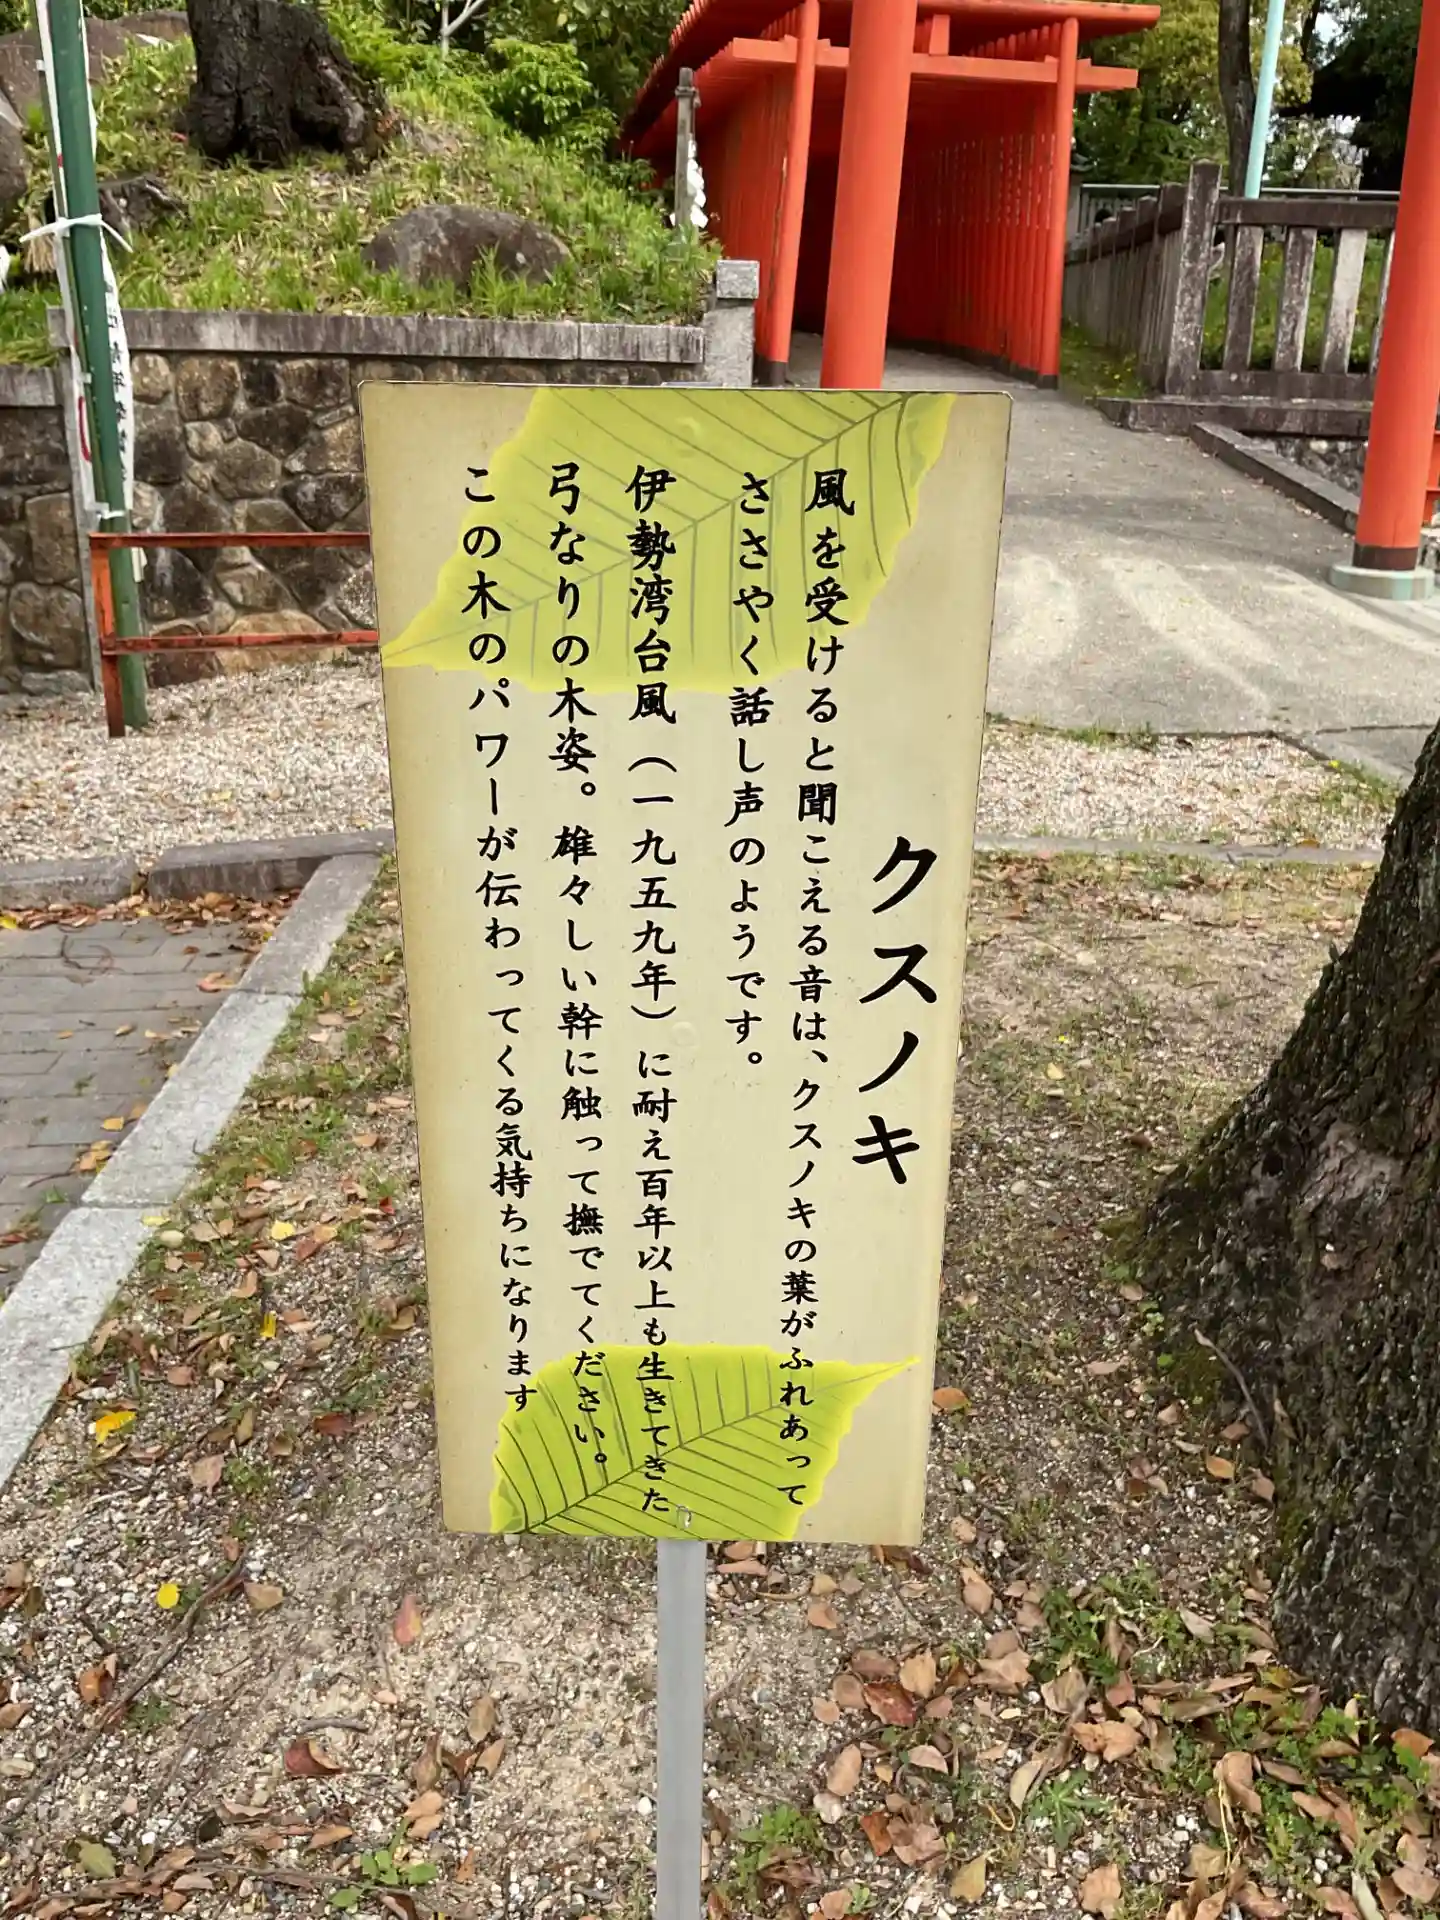 クスノキ
風を受けると聞こえる音は、クスノキの葉がふれあって
ささやく話し声のようです。
伊勢湾台風（一九五九年）に耐え百年以上も生きてきた
弓なりの木姿。雄々しい幹に触って撫でてください。
この木のパワーが伝わってくる気持ちになります